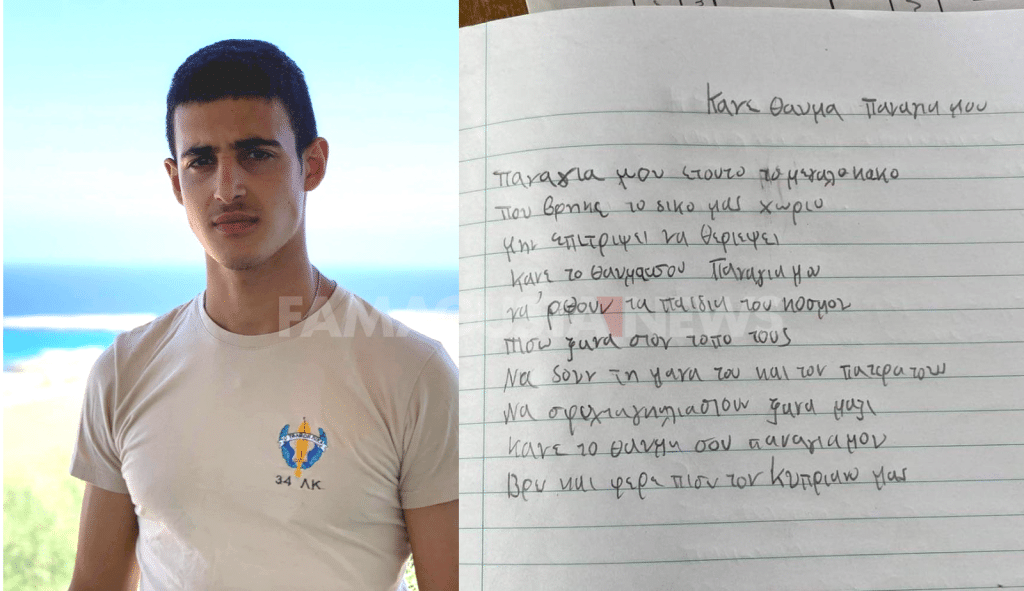 34 ΛΚ.
FAMAGUSTA NEWS
Κανε θαυμα παναγια μου
παναγια μου ετουτο το μεγαλο κακο
που βρηκε το δικο μας χωριο
μην επιτριψει να θεριεψει
κανε το θαυμασου Παναγια μου
να 'ρθουν τα παιδια του κοσμου
πισω ξανα στον τοπο τους
Να δουν τη μανα του και τον πατερα των
Να σφιχταγκλιαστουν ξανα μαζι
κανε το θαυμα σου παναγια μου
Βρε και φερε πισω τον Κυπριανο μας